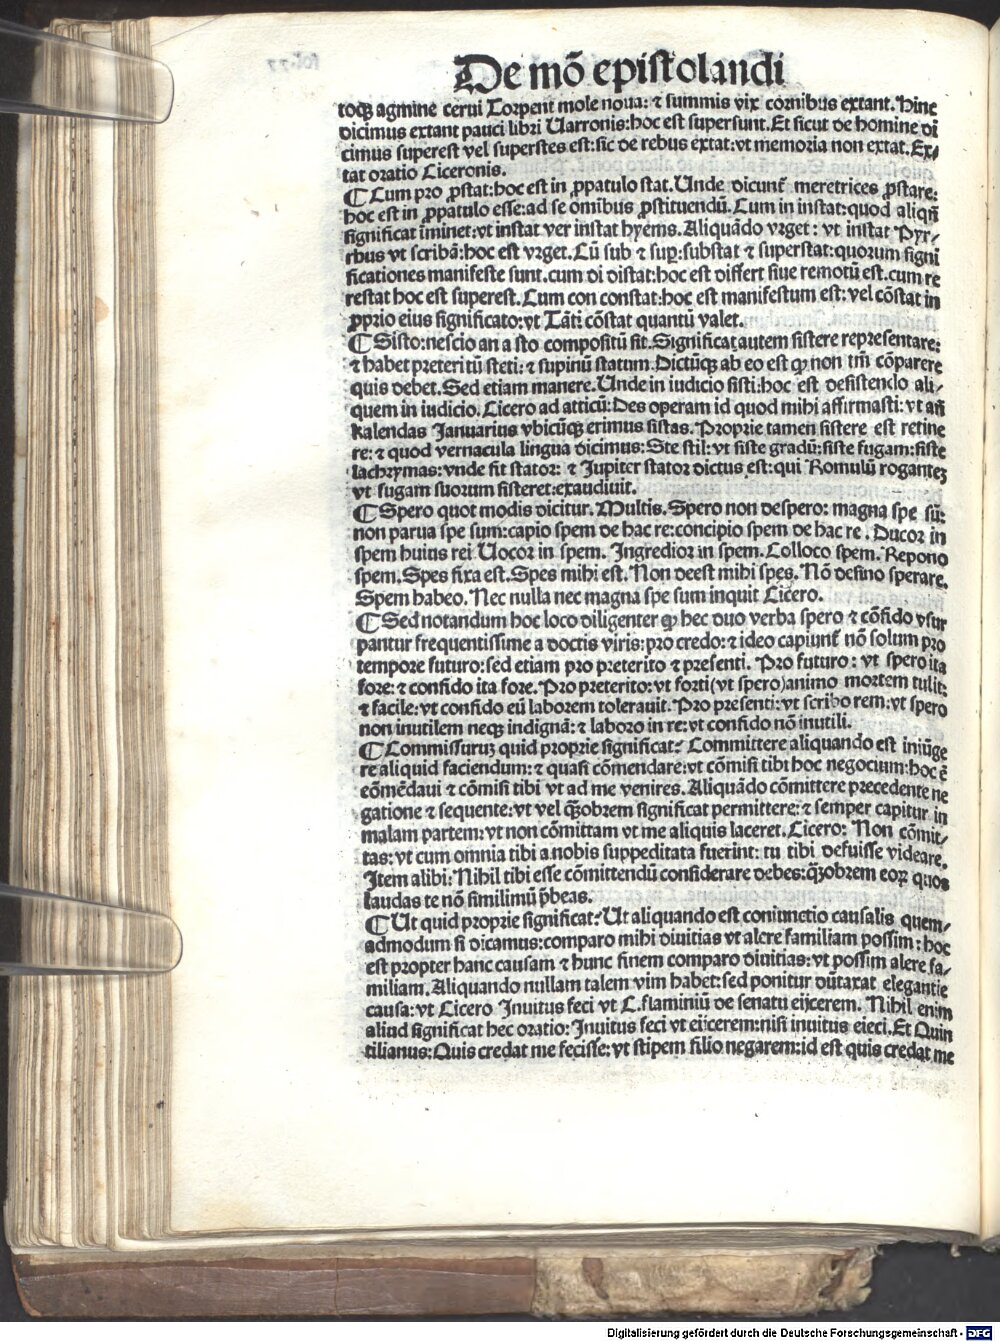 De mō epistolandi
toqꝫ agmine cerui Torpent mole noua: ⁊ summis vix cornibus extant. Hinc
dicimus extant pauci libri Uarronis: hoc est supersunt. Et sicut de homine di
cimus superest vel superstes est: sic de rebus extat: vt memoria non extat. Ex⸗
tat oratio Ciceronis.
¶ Cum pro ꝓstat: hoc est in ꝓpatulo stat. Unde dicunt̄ meretrices ꝓstare:
hoc est in ꝓpatulo esse: ad se omībus ꝓstituendū. Cum in instat: quod aliqn̄
significat īminet: vt instat ver instat hyems. Aliquādo vrget: vt instat Pyr⸗
rhus vt scribā: hoc est vrget. Cū sub ⁊ suꝑ: substat ⁊ superstat: quorum signi
ficationes manifeste sunt. cum di distat: hoc est differt siue remotū est. cum re
restat hoc est superest. Cum con constat: hoc est manifestum est: vel cōstat in
ꝓprio eius significato: vt Tāti cōstat quantū valet.
¶ Sisto: nescio an a sto compositū sit. Significat autem sistere representare:
⁊ habet preteritū steti: ⁊ supinū statum. Dictūqꝫ ab eo est ꝙ non tm̄ cōparere
quis debet. Sed etiam manere. Unde in iudicio sisti: hoc est desistendo ali⸗
quem in iudicio. Cicero ad atticū: Des operam id quod mihi affirmasti: vt an̄
kalendas Januarius vbicūqꝫ erimus sistas. Proprie tamen sistere est retine
re: ⁊ quod vernacula lingua dicimus: Ste stil: vt siste gradū: siste fugam: siste
lachrymas: vnde fit stator: ⁊ Jupiter stator dictus est: qui Romulū roganteꝫ
vt fugam suorum sisteret: exaudiuit.
¶ Spero quot modis dicitur. Multis. Spero non despero: magna spe sū:
non parua spe sum: capio spem de hac re: concipio spem de hac re. Ducor in
spem huius rei Uocor in spem. Ingredior in spem. Colloco spem. Repono
spem. Spes fixa est. Spes mihi est. Non deest mihi spes. Nō desino sperare.
Spem habeo. Nec nulla nec magna spe sum inquit Cicero.
¶ Sed notandum hoc loco diligenter ꝙ hec duo verba spero ⁊ cōfido vsur
pantur frequentissime a doctis viris: pro credo: ⁊ ideo capiunt̄ nō solum pro
tempore futuro: sed etiam pro preterito ⁊ presenti. Pro futuro: vt spero ita
fore: ⁊ confido ita fore. Pro preterito: vt forti (vt spero) animo mortem tulit:
⁊ facile: vt confido eū laborem tolerauit. Pro presenti: vt scribo rem: vt spero
non inutilem neqꝫ indignā: ⁊ laboro in re: vt confido nō inutili.
¶ Commissuruꝫ quid proprie significat? Committere aliquando est iniūge
re aliquid faciendum: ⁊ quasi cōmendare: vt cōmisi tibi hoc negocium: hoc ē
cōmēdaui ⁊ cōmisi tibi vt ad me venires. Aliquādo cōmittere precedente ne
gatione ⁊ sequente: vt vel q̄obrem significat permittere: ⁊ semper capitur in
malam partem: vt non cōmittam vt me aliquis laceret. Cicero: Non cōmit⸗
tas: vt cum omnia tibi a nobis suppeditata fuerint: tu tibi defuisse videare.
Item alibi: Nihil tibi esse cōmittendū considerare debes: q̄obrem eoꝝ quos
laudas te nō similimū p̄beas.
¶ Ut quid proprie significat? Ut aliquando est coniunctio causalis quem⸗
admodum si dicamus: comparo mihi diuitias vt alere familiam possim: hoc
est propter hanc causam ⁊ hunc finem comparo diuitias: vt possim alere fa⸗
miliam. Aliquando nullam talem vim habet: sed ponitur dūtaxat elegantie
causa: vt Cicero Inuitus feci vt C. flaminiū de senatu eijcerem. Nihil enim
aliud significat hec oratio: Inuitus feci vt eijcerem: nisi inuitus eieci. Et Quin
tilianus: Quis credat me fecisse: vt stipem filio negarem: id est quis credat me
Digitalisierung gefördert durch die Deutsche Forschungsgemeinschaft - DFG